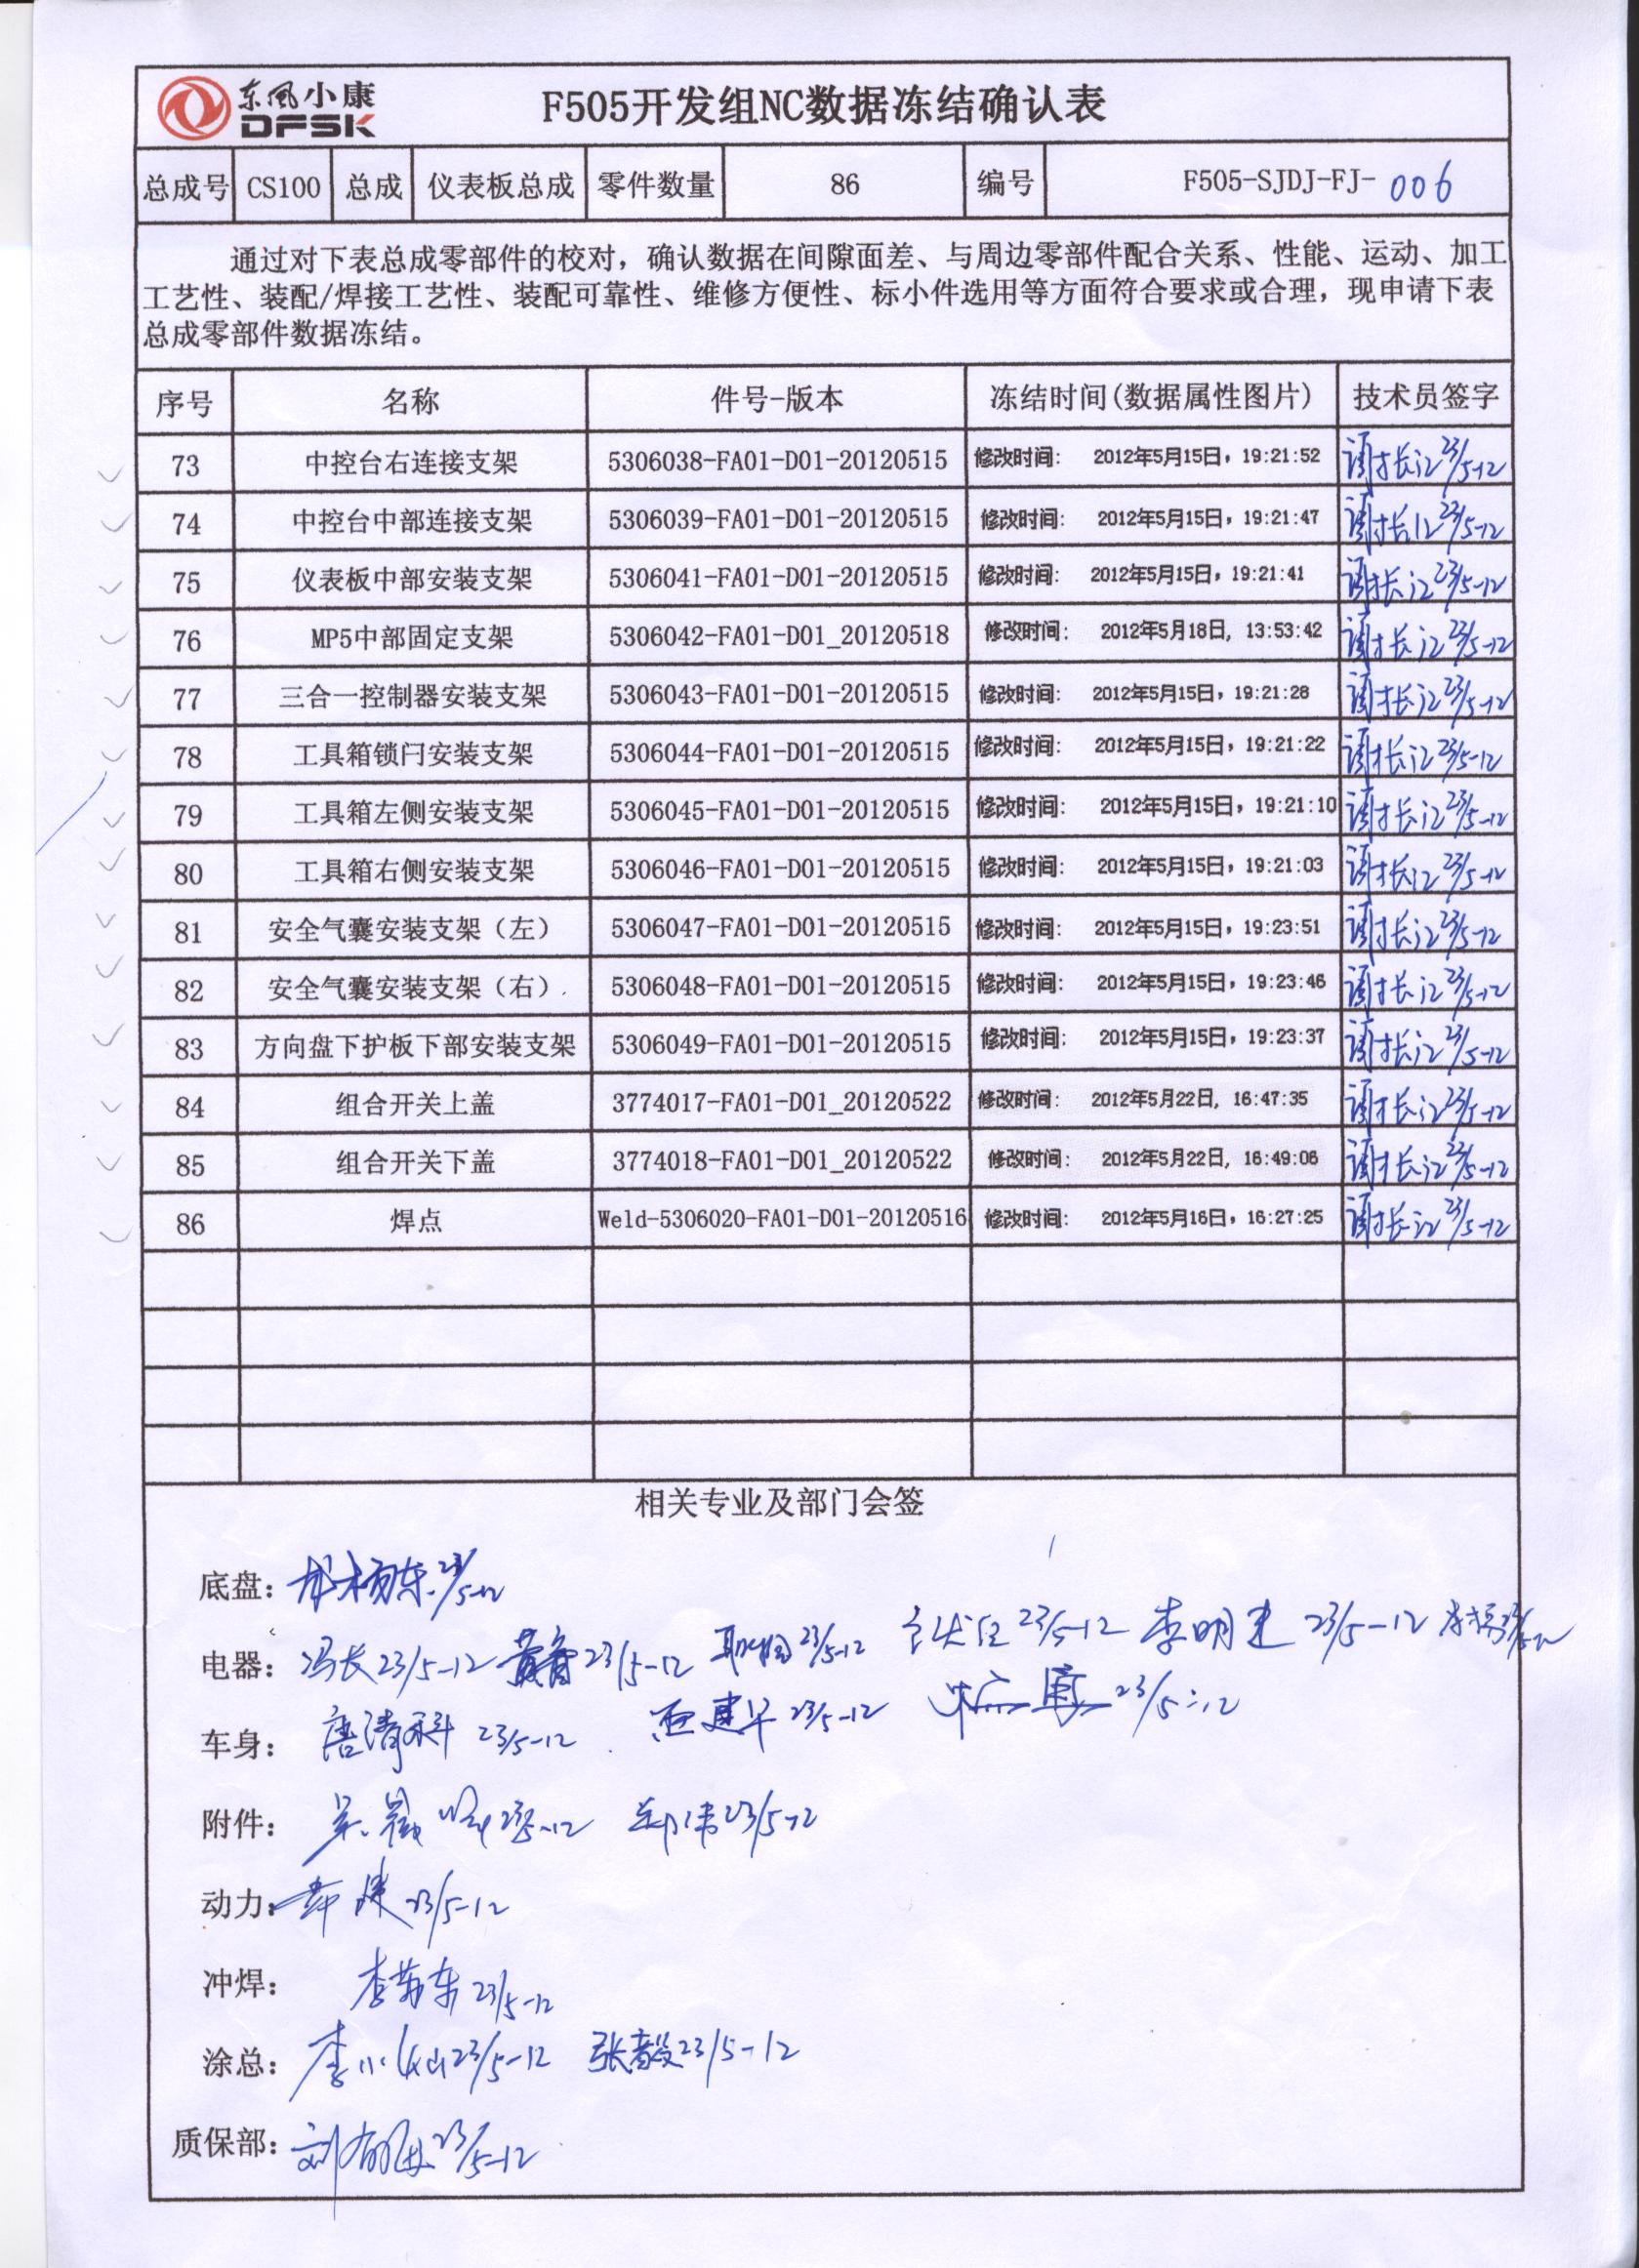 东风小康
DFSK
F505开发组NC数据冻结确认表
总成号 CS100 总成 仪表板总成 零件数量 86 编号 F505-SJDJ-FJ-006
通过对下表总成零部件的校对，确认数据在间隙面差、与周边零部件配合关系、性能、运动、加工
工艺性、装配/焊接工艺性、装配可靠性、维修方便性、标小件选用等方面符合要求或合理，现申请下表
总成零部件数据冻结。
序号 名称 件号-版本 冻结时间(数据属性图片) 技术员签字
73 中控台右连接支架 5306038-FA01-D01-20120515 修改时间： 2012年5月15日，19:21:52 23/5-12
74 中控台中部连接支架 5306039-FA01-D01-20120515 修改时间： 2012年5月15日，19:21:47 23/5-12
75 仪表板中部安装支架 5306041-FA01-D01-20120515 修改时间： 2012年5月15日，19:21:41 23/5-12
76 MP5中部固定支架 5306042-FA01-D01_20120518 修改时间： 2012年5月18日, 13:53:42 23/5-12
77 三合一控制器安装支架 5306043-FA01-D01-20120515 修改时间： 2012年5月15日，19:21:28 23/5-12
78 工具箱锁闩安装支架 5306044-FA01-D01-20120515 修改时间： 2012年5月15日，19:21:22 23/5-12
79 工具箱左侧安装支架 5306045-FA01-D01-20120515 修改时间： 2012年5月15日，19:21:10 23/5-12
80 工具箱右侧安装支架 5306046-FA01-D01-20120515 修改时间： 2012年5月15日，19:21:03 23/5-12
81 安全气囊安装支架（左） 5306047-FA01-D01-20120515 修改时间： 2012年5月15日，19:23:51 23/5-12
82 安全气囊安装支架（右） 5306048-FA01-D01-20120515 修改时间： 2012年5月15日，19:23:46 23/5-12
83 方向盘下护板下部安装支架 5306049-FA01-D01-20120515 修改时间： 2012年5月15日，19:23:37 23/5-12
84 组合开关上盖 3774017-FA01-D01_20120522 修改时间： 2012年5月22日, 16:47:35 23/5-12
85 组合开关下盖 3774018-FA01-D01_20120522 修改时间： 2012年5月22日, 16:49:06 23/5-12
86 焊点 Weld-5306020-FA01-D01-20120516 修改时间： 2012年5月16日，16:27:25 23/5-12
相关专业及部门会签
底盘： 23/5-12
电器： 冯长 23/5-12 23/5-12 23/5-12 23/5-12 李明建 23/5-12 23/5-12
车身： 唐清科 23/5-12 23/5-12 23/5-12
附件： 23/5-12 23/5-12
动力： 23/5-12
冲焊： 23/5-12
涂总： 23/5-12 张毅 23/5-12
质保部： 23/5-12